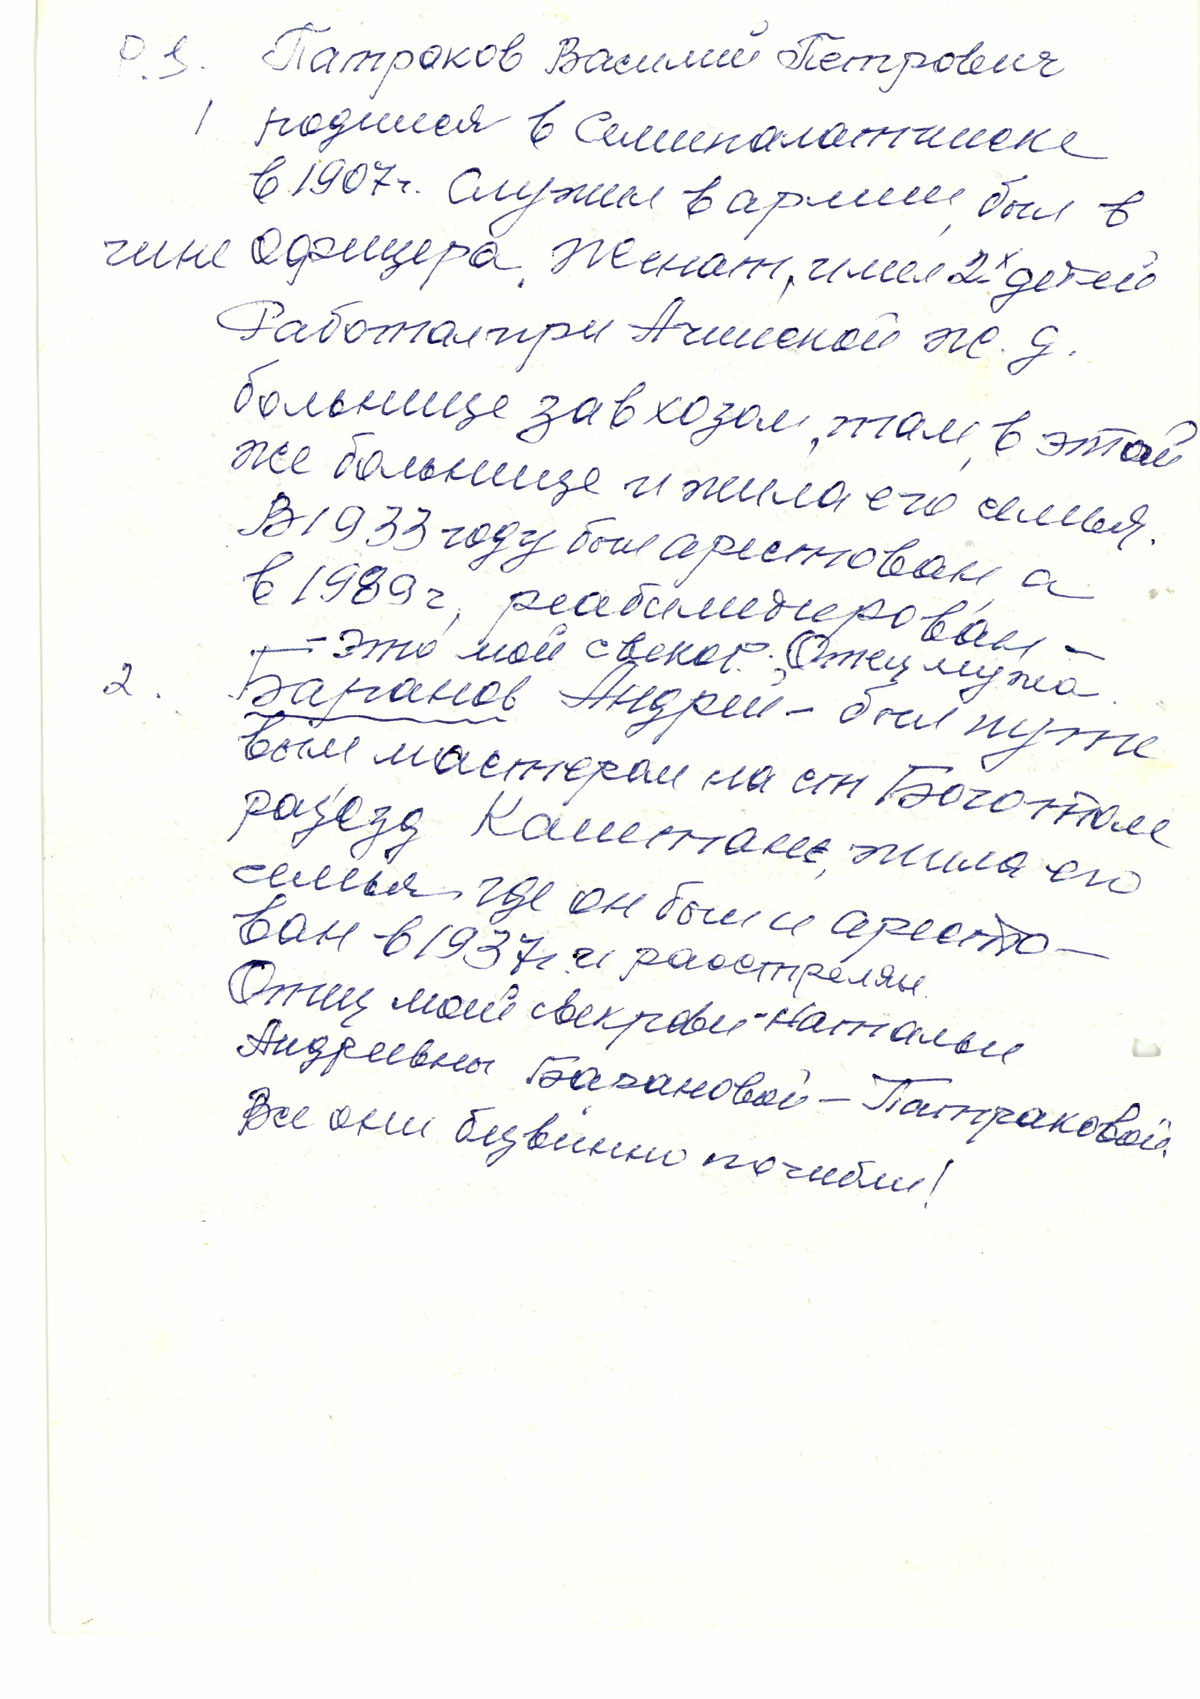 P.S. Патраков Василий Петрович
1 родился в Семипалатинске
в 1907г. Служил в армии, был в
чине офицера. Женат, имел 2х детей
Работал при Ачинской ж. д.
больнице завхозом, там, в этой
же больнице и жила его семья.
В 1933 году был арестован, а
в 1989г. реабилитирован –
– это мой свекор. Отец мужа
2. Баранов Андрей – был путе
вым мастером на ст Боготоле
разъезд Каштане, жила его
семья, где он был и аресто–
ван в 1937г. и расстрелян.
Отец моей свекрови – Натальи
Андреевны Барановой – Патраковой.
Все они безвинно погибли!